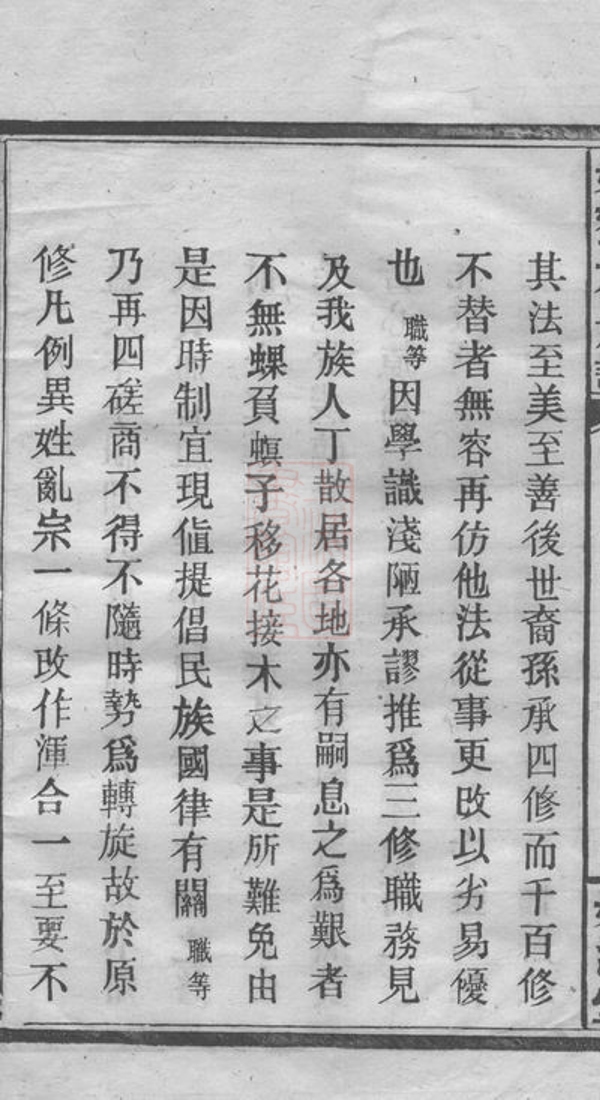 其法至美至善後世裔孫承四修而千百修
不替者無容再仿他法從事更改以劣易優
也職等因學識淺陋承謬推爲三修職務見
及我族人丁散居各地亦有嗣息之爲艱者
不無螟負螟子移花接木之事是所難免由
是因時制宜現值提倡民族國律有關職等
乃再四磋商不得不隨時勢爲轉旋故於原
修凡例異姓亂宗一條改作渾合一至要不